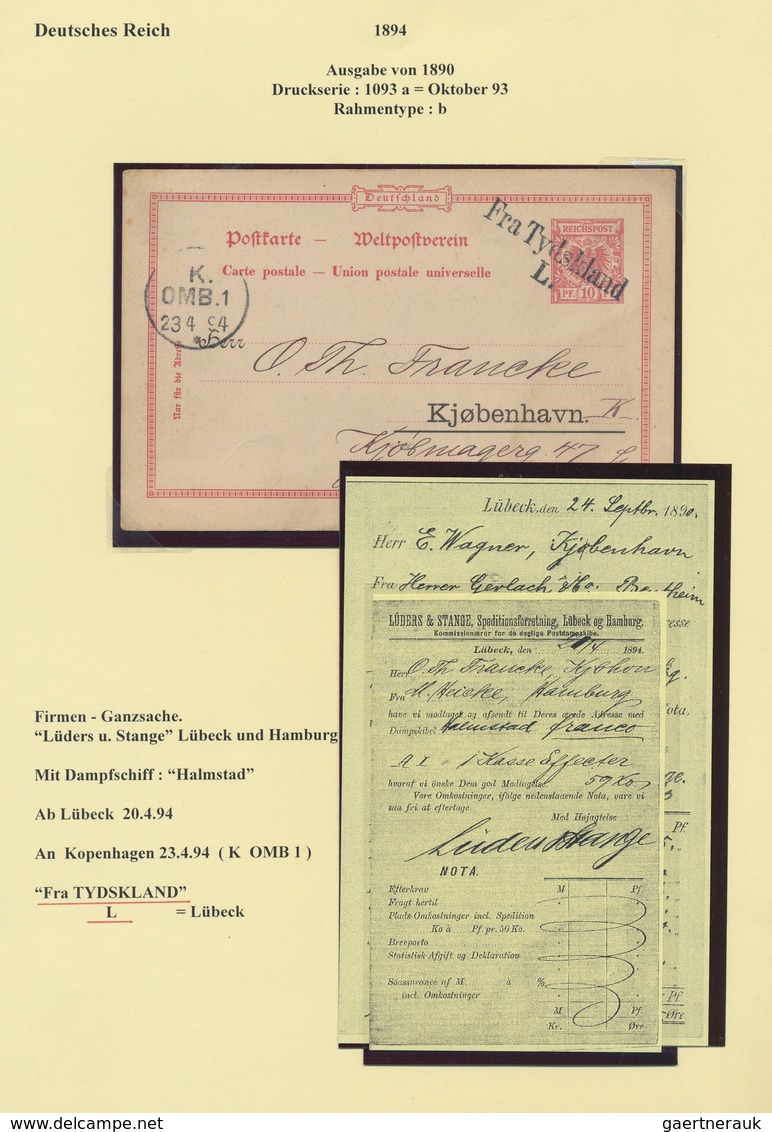 Deutsches Reich 1894
Ausgabe von 1890
Druckserie : 1093 a = Oktober 93
Rahmentype : b
Deutschland
Fra Tydskland
L.
REICHSPOST
PF. 10
Postkarte — Weltpostverein
Carte postale — Union postale universelle
K.
OMB.1
23 4 94
Herr
Nur für die Adresse
O. Th. Francke
Kjøbenhavn. K
Kjöbmagerg. 47
Lübeck, den 24. Septbr. 1890.
Herr E. Wagner, Kjøbenhavn
Fra Herrer Gerlach & Co.
LÜDERS & STANGE, Speditionsforretning, Lübeck og Hamburg.
Kommissionærer for de daglige Postdampskibe.
Lübeck, den 20/4 1894.
Herr O. Th. Francke, Kjøbhvn
Fra H. Heicke, Hamburg
have vi modtaget og afsendt til Deres ærede Adresse med
Dampskibet Halmstad franco
A I 1 Kasse Effecter
59 Ko
hvoraf vi ønske Dem god Modtagelse.
Vore Omkostninger, ifølge nedenstaaende Nota, vare vi
saa fri at eftertage.
Med Højagtelse
Lüders & Stange
NOTA.
Efterkrav M Pf.
Fragt hertil
Plads-Omkostninger incl. Spedition
Ko à Pf. pr. 50 Ko.
Brevporto
Statistisk Afgift og Deklaration
Söassurance af M à %
incl. Omkostninger
M Pf
Kr. Øre
Pf
Pf
Øre
Firmen - Ganzsache.
“Lüders u. Stange” Lübeck und Hamburg
Mit Dampfschiff : “Halmstad”
Ab Lübeck 20.4.94
An Kopenhagen 23.4.94 ( K OMB 1 )
“Fra TYDSKLAND”
L = Lübeck
gaertnerauk